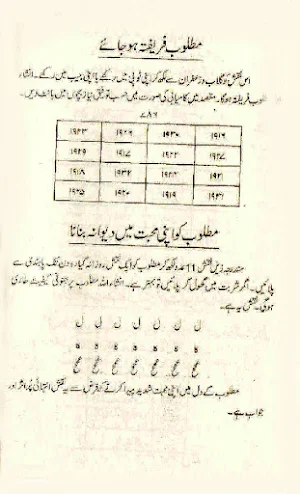 مطلوب فریفتہ ہو جائے
اس نقش کو گلاب و زعفران سے لکھ کر اپنی ٹوپی میں رکھے یا اپنی جیب میں رکھے۔ انشاء
مطلوب فریفتہ ہوگا۔ مقصد میں کامیابی کی صورت میں حسب توفیق نیاز بچوں میں بانٹ دیں۔
۷۸۶
۱۹۲۳ ۱۹۲۶ ۱۹۳۰ ۱۹۱۶
۱۹۲۹ ۱۹۱۷ ۱۹۲۲ ۱۹۲۷
۱۹۱۸ ۱۹۳۲ ۱۹۲۴ ۱۹۲۱
۱۹۲۵ ۱۹۲۰ ۱۹۱۹ ۱۹۳۱
مطلوب کو اپنی محبت میں دیوانہ بنانا
مندرجہ ذیل نقش 11 عدد لکھ کر مطلوب کو ایک نقش روزانہ گیارہ دن تک پابندی سے
پلائیں۔ اگر شربت میں گھول کر پلائیں تو بہتر ہے۔ انشاء اللہ مطلوب پر جنونی کیفیت طاری
ہوگی۔ نقش یہ ہے۔
ل ل ل ل ل ل ل
ہ ہ ہ ہ ہ ہ ہ
مطلوب کے دل میں اپنی محبت شدید پیدا کرنے کی غرض سے یہ نقش انتہائی پُر اثر اور
جواب ہے۔